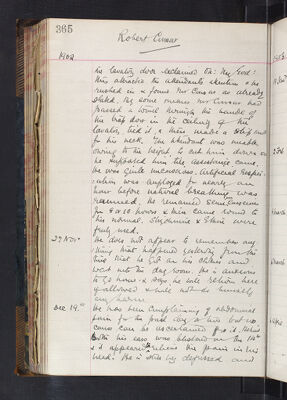 365
Robert Cursor
1902
his lavatory door exclaimed "Oh: My God!
this attracted the attendants attention & he
rushed in & found Mr as already
stated. By some means Mr had
passed a towel through the handle of
the trap door in the ceiling of the
lavatory, tied it, & then made a slip knot
for his neck. The attendant was unable
owing to the height to cut him down so
he supported him till assistance came.
He was quite unconscious. Artificial Respir-
ation was employed for nearly an
hour before natural breathing was
resumed. He remained Semi Conscious
for 8 or 10 hours & then came round to
his normal. Strychnine & Ether were
freely used.
27 Nov.
He does not appear to remember any
thing that happened yesterday from the
time that he got on his clothes and
went into the day room. He is anxious
to go home & says he will return here
if allowed & will not do himself
any harm.
Dec 19th
He has been complaining of abdominal
pain for the past day or two but no
cause can be ascertained for it.
his ears was blistered on the 14th
as it appeared to relieve the pain in his
head. He is still very depressed and